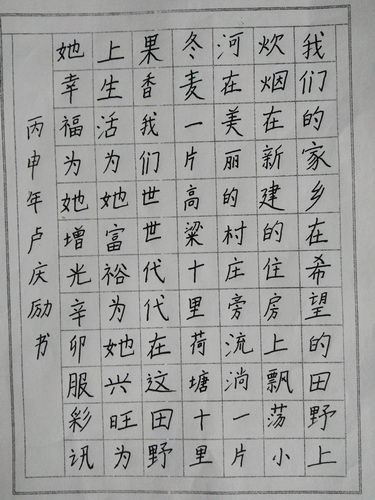 我们的家乡在希望的田野上
炊烟在新建的住房上飘荡小
河在美丽的村庄旁流淌一片
冬麦一片高粱十里荷塘十里
果香我们世世代代在这田野
上生活为她富裕为她兴旺为
她幸福为她增光辛卯服彩讯
丙申年卢庆励书